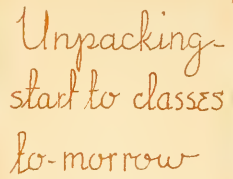 Unpacking-
start to classes
to-morrow